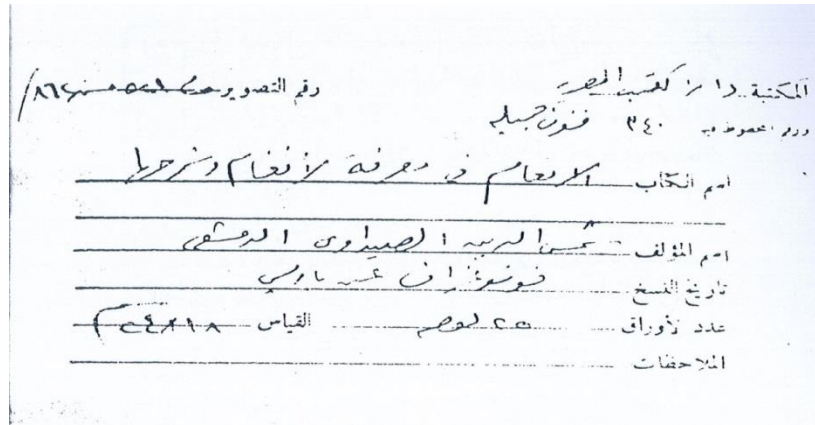 المكتبة دار الكتب المصرية رقم التصوير
ورقم المخطوط به ٣٤٠ فنون جميلة
اسم الكتاب الانعام فى معرفة الانغام وشرحها
اسم المؤلف شمس الدين الصيداوى الدمشقى
تاريخ النسخ فوتوغراف عن باريس
عدد الأوراق ٢٥ لوحه القياس ١٨×٢٤
الملاحظات